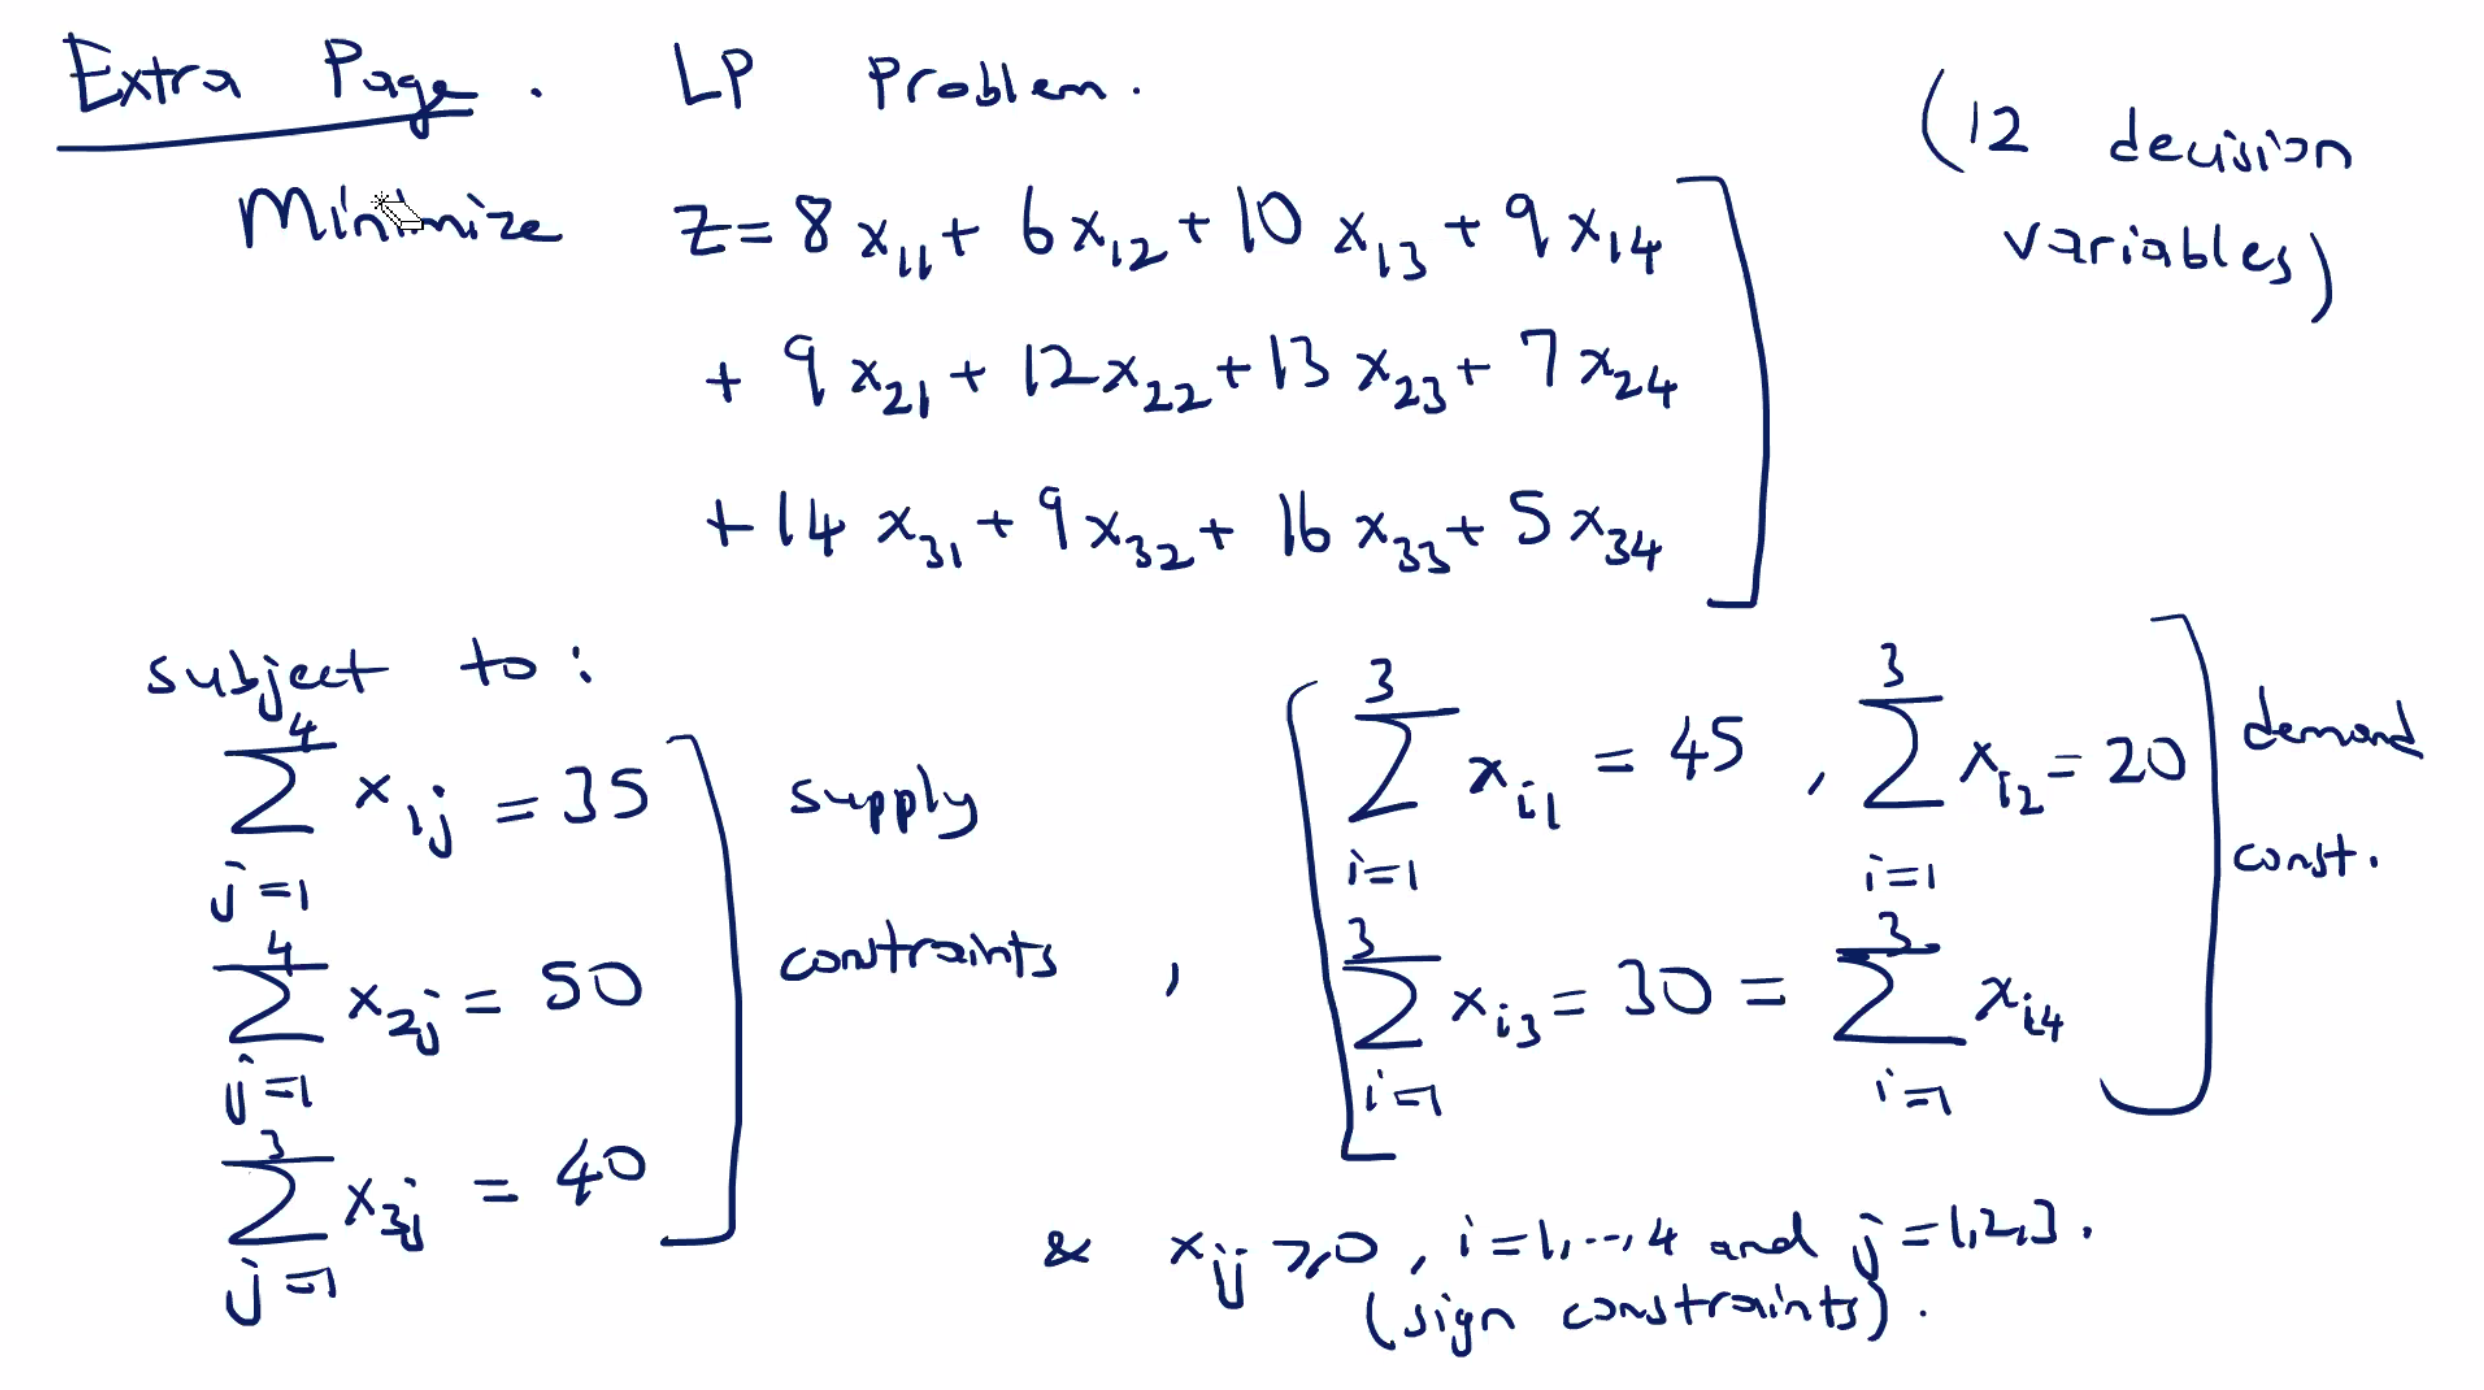 Extra Page. LP Problem.
(12 decision variables)
Minimize z = 8 x₁₁ + 6 x₁₂ + 10 x₁₃ + 9 x₁₄
+ 9 x₂₁ + 12 x₂₂ + 13 x₂₃ + 7 x₂₄
+ 14 x₃₁ + 9 x₃₂ + 16 x₃₃ + 5 x₃₄
subject to:
∑_{j=1}^{4} x_{1j} = 35
∑_{j=1}^{4} x_{2j} = 50
∑_{j=1}^{3} x_{3j} = 40
supply
constraints ,
∑_{i=1}^{3} x_{i1} = 45 , ∑_{i=1}^{3} x_{i2} = 20
∑_{i=1}^{3} x_{i3} = 30 = ∑_{i=1}^{3} x_{i4}
demand
const.
& x_{ij} ≥ 0 , i = 1, .., 4 and j = 1, 2, 3 .
(sign constraints) .